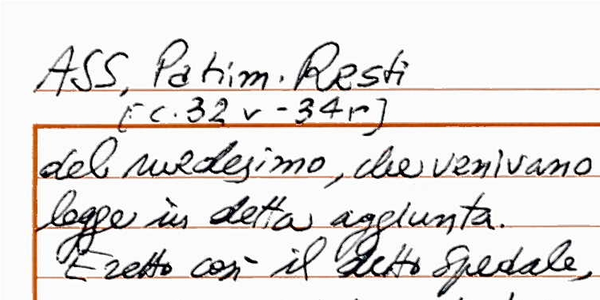 ASS, Patrim. Resti
[c. 32 v - 34 r]
del medesimo, che venivano
legge in detta aggiunta.
Eretto così il detto Spedale,